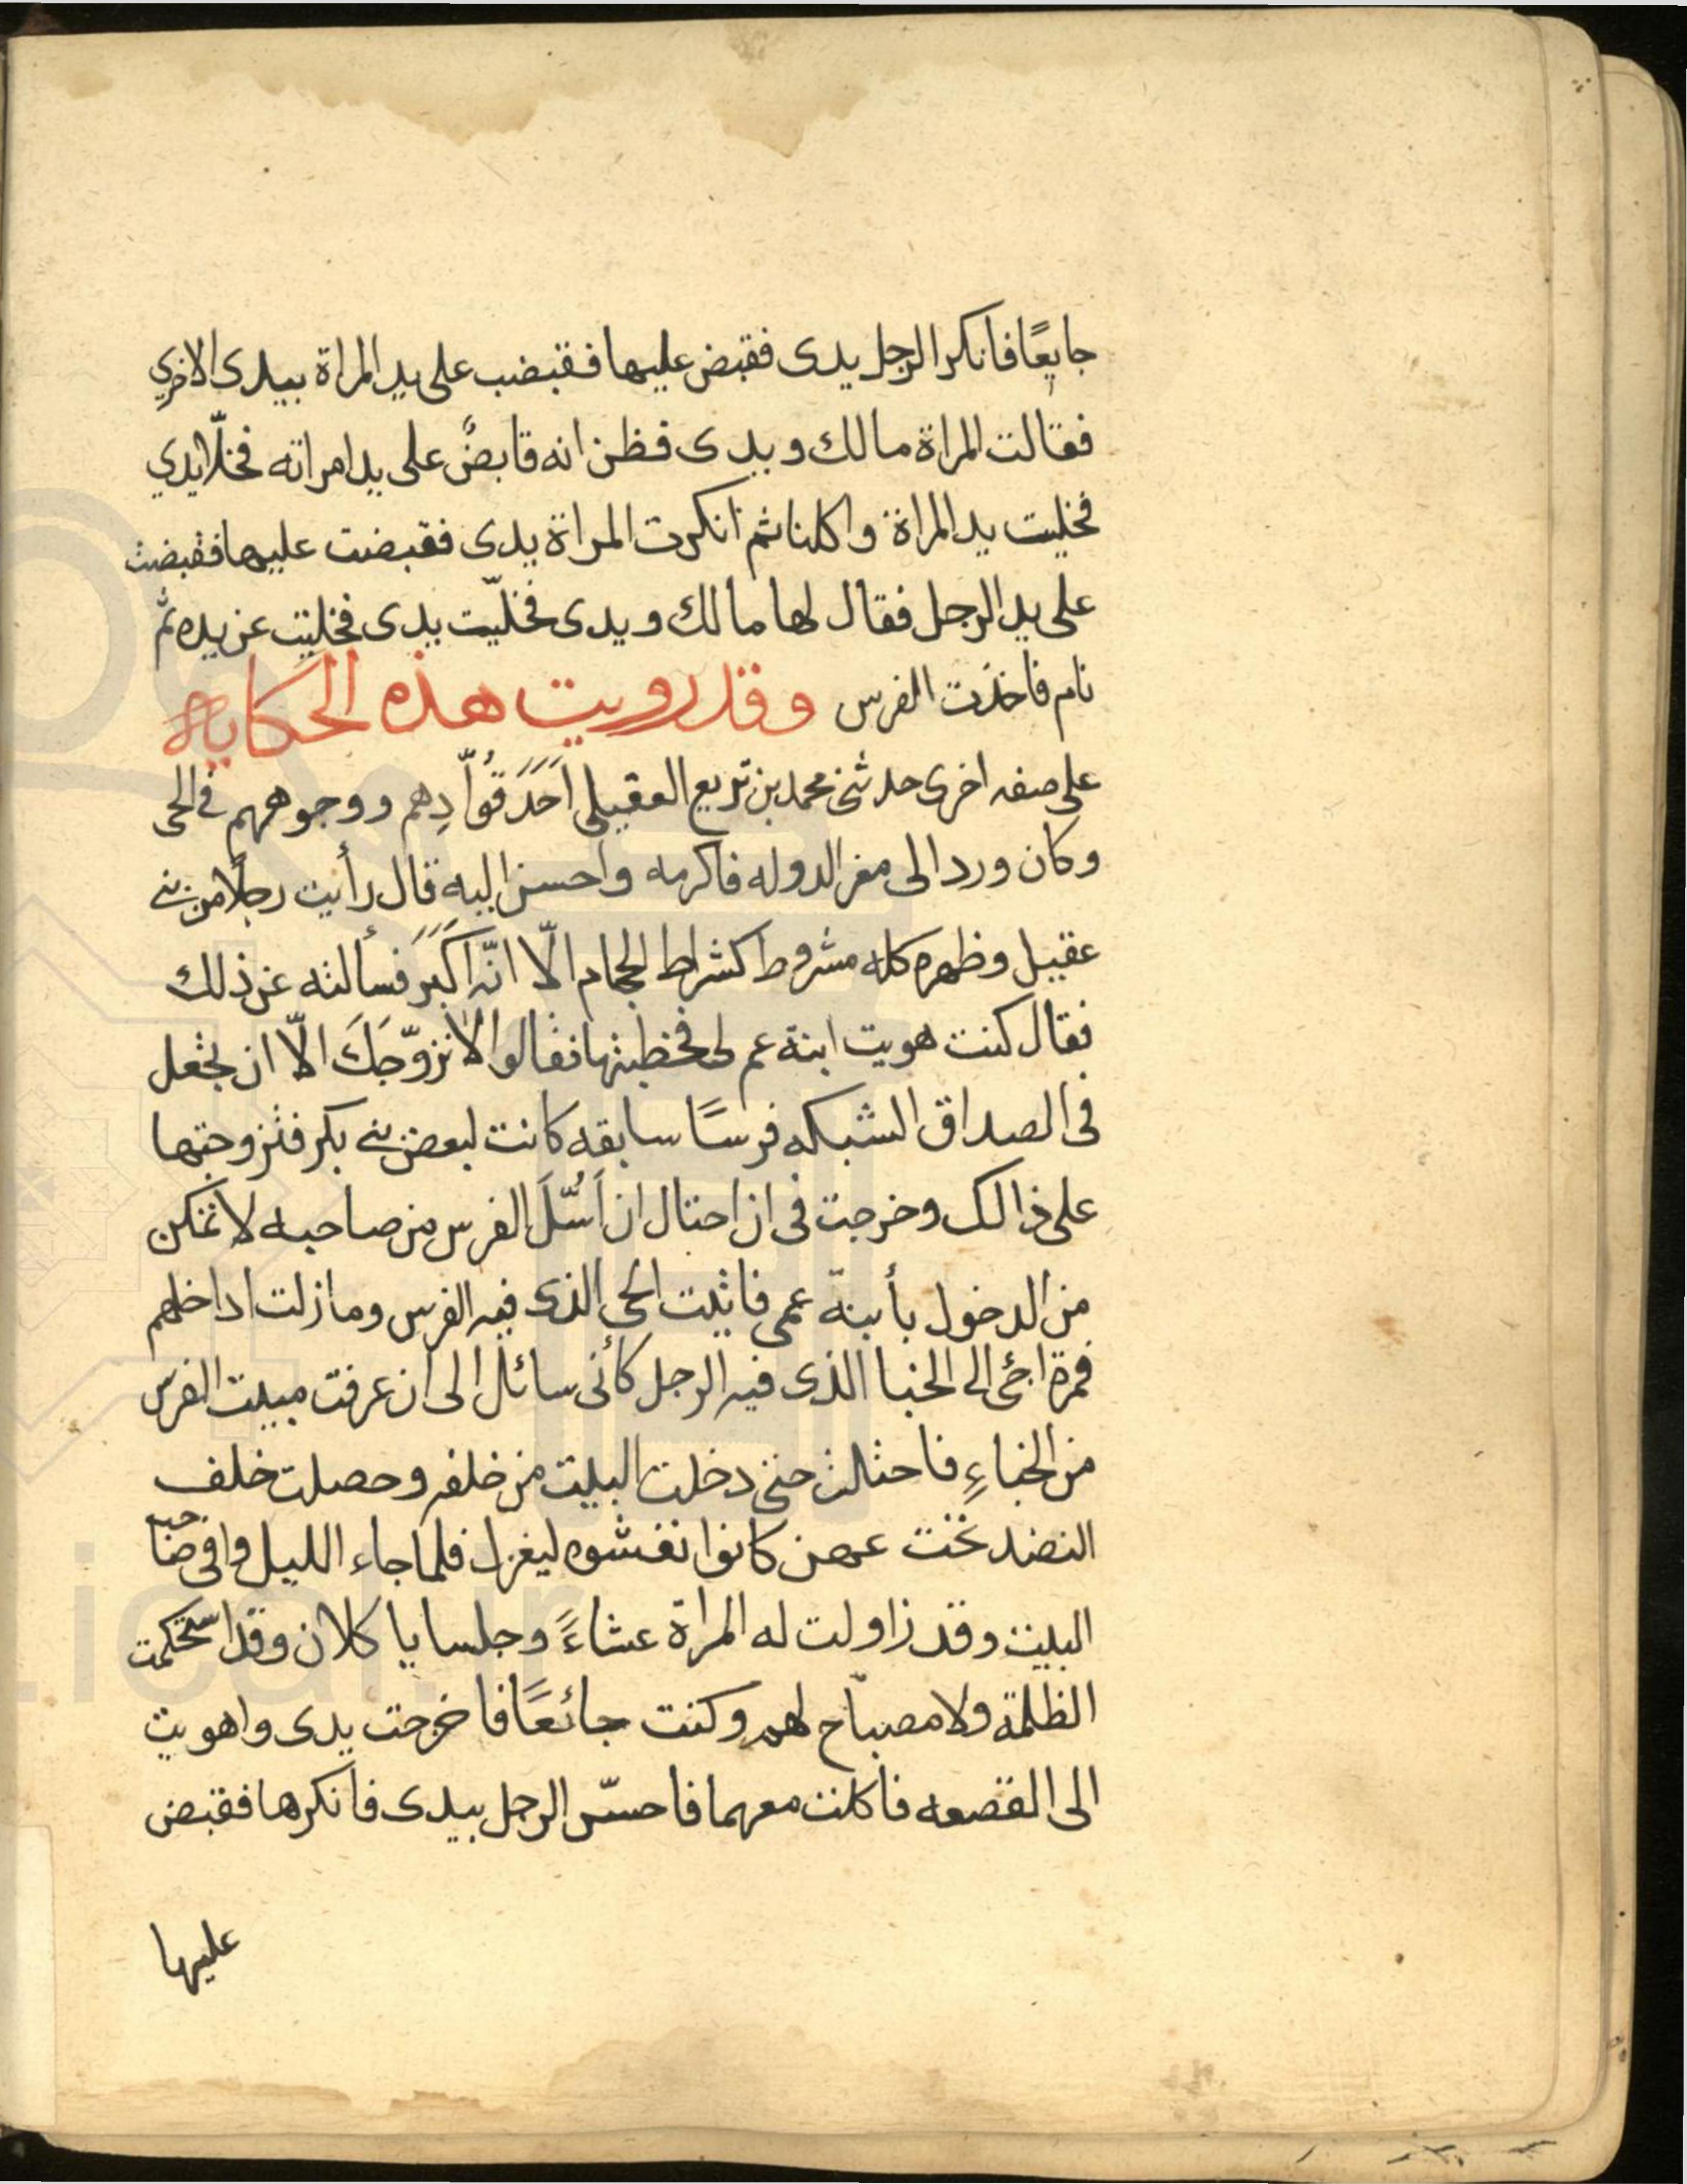 جايعًا فانكر الرجل يدى فقبض عليها فقبضب على يد المراة بيدى الاخري
فقالت المراة مالك ويدى فظن انه قابضٌ على يد امراته فخلّا يدي
فخليت يد المراة واكلنا ثم انكرت المراة يدى فقبضت عليها فقبضت
على يد الرجل فقال لها مالك ويدى فخلّيت يدى فخليت عن يده ثم
نام فاخذت الفرس وقد رويت هذه الحكايه
على صفه اخرى حدثنى محمد بن بزيع العقيلى اَحَدَ قُوّادِهم ووجوههم في الحى
وكان ورد الى معز الدوله فاكرمه واحسن اليه قال رأيت رجلًا من بنى
عقيل وظهره كله مشروط كشراط الحجام الّا انّه اكَبَرَ فسألته عن ذلك
فقال كنت هويت ابنة عم لى فخطبتها فقالوا لا نزوّجَكَ الّا ان تجعل
فى الصداق الشبكه فرسًا سابقه كانت لبعض بنى بكر فتزوجتها
على ذالك وخرجت فى ان احتال ان اَسُّلَ الفرس من صاحبه لاتمكن
من الدخول بأبنة عمى فاتيت الحى الذى فيه الفرس ومازلت اداخلهم
فمرة اجئ الى الخبا الذى فيه الرجل كأنى سائل الى ان عرفت مبيت الفرس
من الخباءِ فاحتالت حتى دخلت البيت من خلفه وحصلت خلف
النضد تحت عهن كانوا نفشوه ليغزل فلما جاء الليل وافى صاحب
البيت وقد زاولت له المراة عشاءً وجلسا ياكلان وقد استحكمت
الظلمة ولا مصباح لهم وكنت جائعًا فاخرجت يدى واهويت
الى القصعه فاكلت معهما فاحسّ الرجل بيدى فانكرها فقبض
عليها